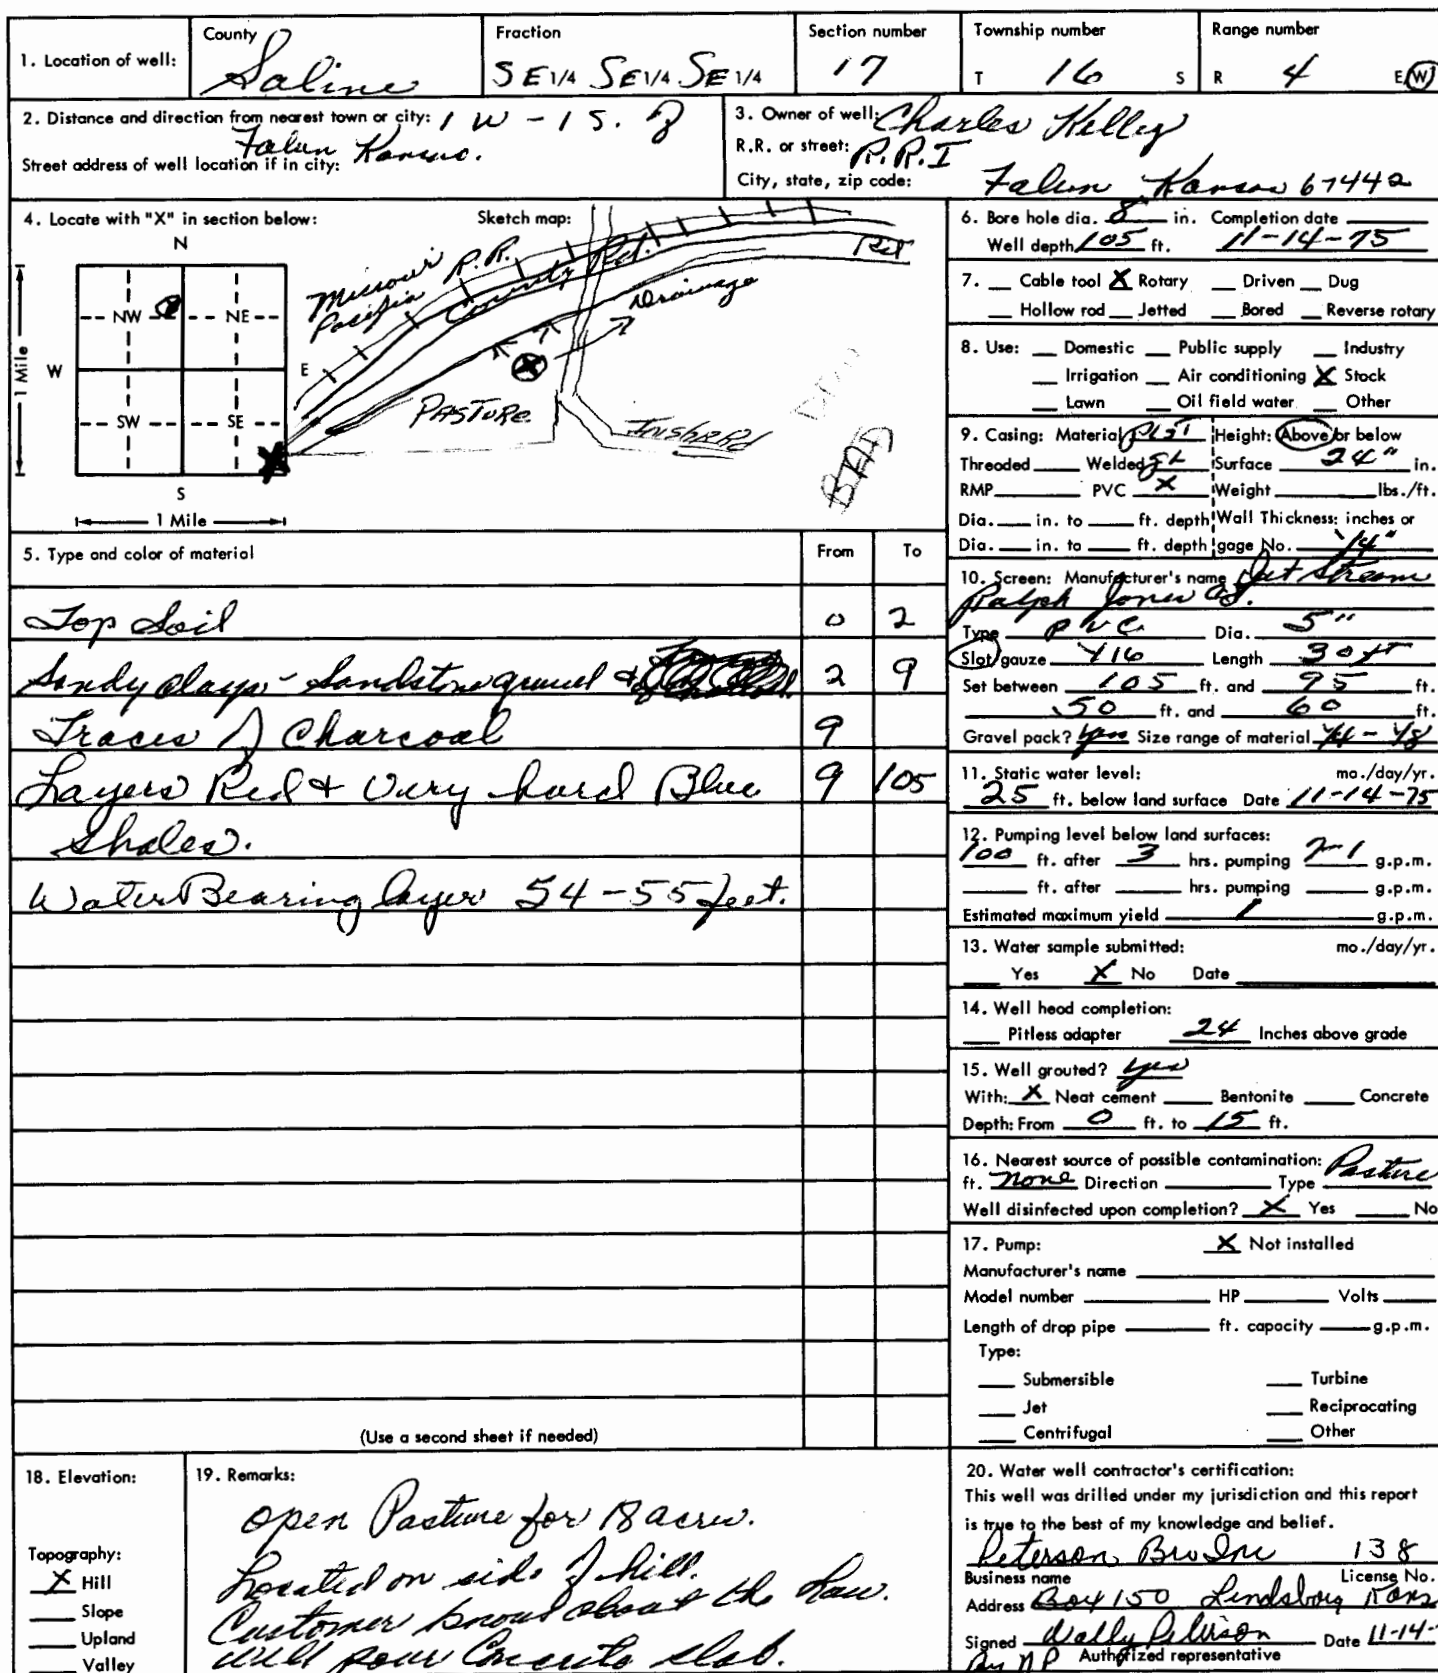 1. Location of well: County Saline Fraction SE1/4 SE1/4 SE1/4 Section number 17 Township number T 16 S Range number R 4 E/W
2. Distance and direction from nearest town or city: 1 W - 1 S. of
Falun Kansas.
Street address of well location if in city:
3. Owner of well: Charles Kelley
R.R. or street: R.R.I
City, state, zip code: Falun Kansas 67442
4. Locate with "X" in section below: Sketch map:
N
NW NE
W E
SW SE
S
1 Mile
1 Mile
Missouri Pacific R.R.
County Rd.
Rd
Drainage
PASTURE
5. Type and color of material From To
Top Soil 0 2
Sandy clays - Sandstone gravel & 2 9
Traces of Charcoal 9
Layers Red & Very hard Blue 9 105
Shales.
Water Bearing layer 54-55 feet.
(Use a second sheet if needed)
6. Bore hole dia. 8 in. Completion date
Well depth 105 ft. 11-14-75
7. Cable tool X Rotary Driven Dug
Hollow rod Jetted Bored Reverse rotary
8. Use: Domestic Public supply Industry
Irrigation Air conditioning X Stock
Lawn Oil field water Other
9. Casing: Material Height: Above or below
Threaded Welded Surface 24" in.
RMP PVC X Weight lbs./ft.
Dia. in. to ft. depth Wall Thickness: inches or
Dia. in. to ft. depth gage No. 1/4"
10. Screen: Manufacturer's name Jet Stream
Ralph Jones Co.
Type PVC Dia. 5"
Slot/gauze 1/16 Length 30 ft
Set between 105 ft. and 95 ft.
50 ft. and 60 ft.
Gravel pack? Yes Size range of material 1/4 - 1/8
11. Static water level: mo./day/yr.
25 ft. below land surface Date 11-14-75
12. Pumping level below land surfaces:
100 ft. after 3 hrs. pumping g.p.m.
ft. after hrs. pumping g.p.m.
Estimated maximum yield 1 g.p.m.
13. Water sample submitted: mo./day/yr.
Yes X No Date
14. Well head completion:
Pitless adapter 24 Inches above grade
15. Well grouted? yes
With: X Neat cement Bentonite Concrete
Depth: From 0 ft. to 15 ft.
16. Nearest source of possible contamination:
ft. None Direction Type Pasture
Well disinfected upon completion? X Yes No
17. Pump: X Not installed
Manufacturer's name
Model number HP Volts
Length of drop pipe ft. capacity g.p.m.
Type:
Submersible Turbine
Jet Reciprocating
Centrifugal Other
18. Elevation:
Topography:
X Hill
Slope
Upland
Valley
19. Remarks:
Open Pasture for 18 acres.
Located on side of hill.
Customer knows about the law.
will pour Concrete slab.
20. Water well contractor's certification:
This well was drilled under my jurisdiction and this report
is true to the best of my knowledge and belief.
Peterson Bro Inc 138
Business name License No.
Address Box 150 Lindsborg Kans
Signed Wally Peterson Date 11-14-
By NP Authorized representative